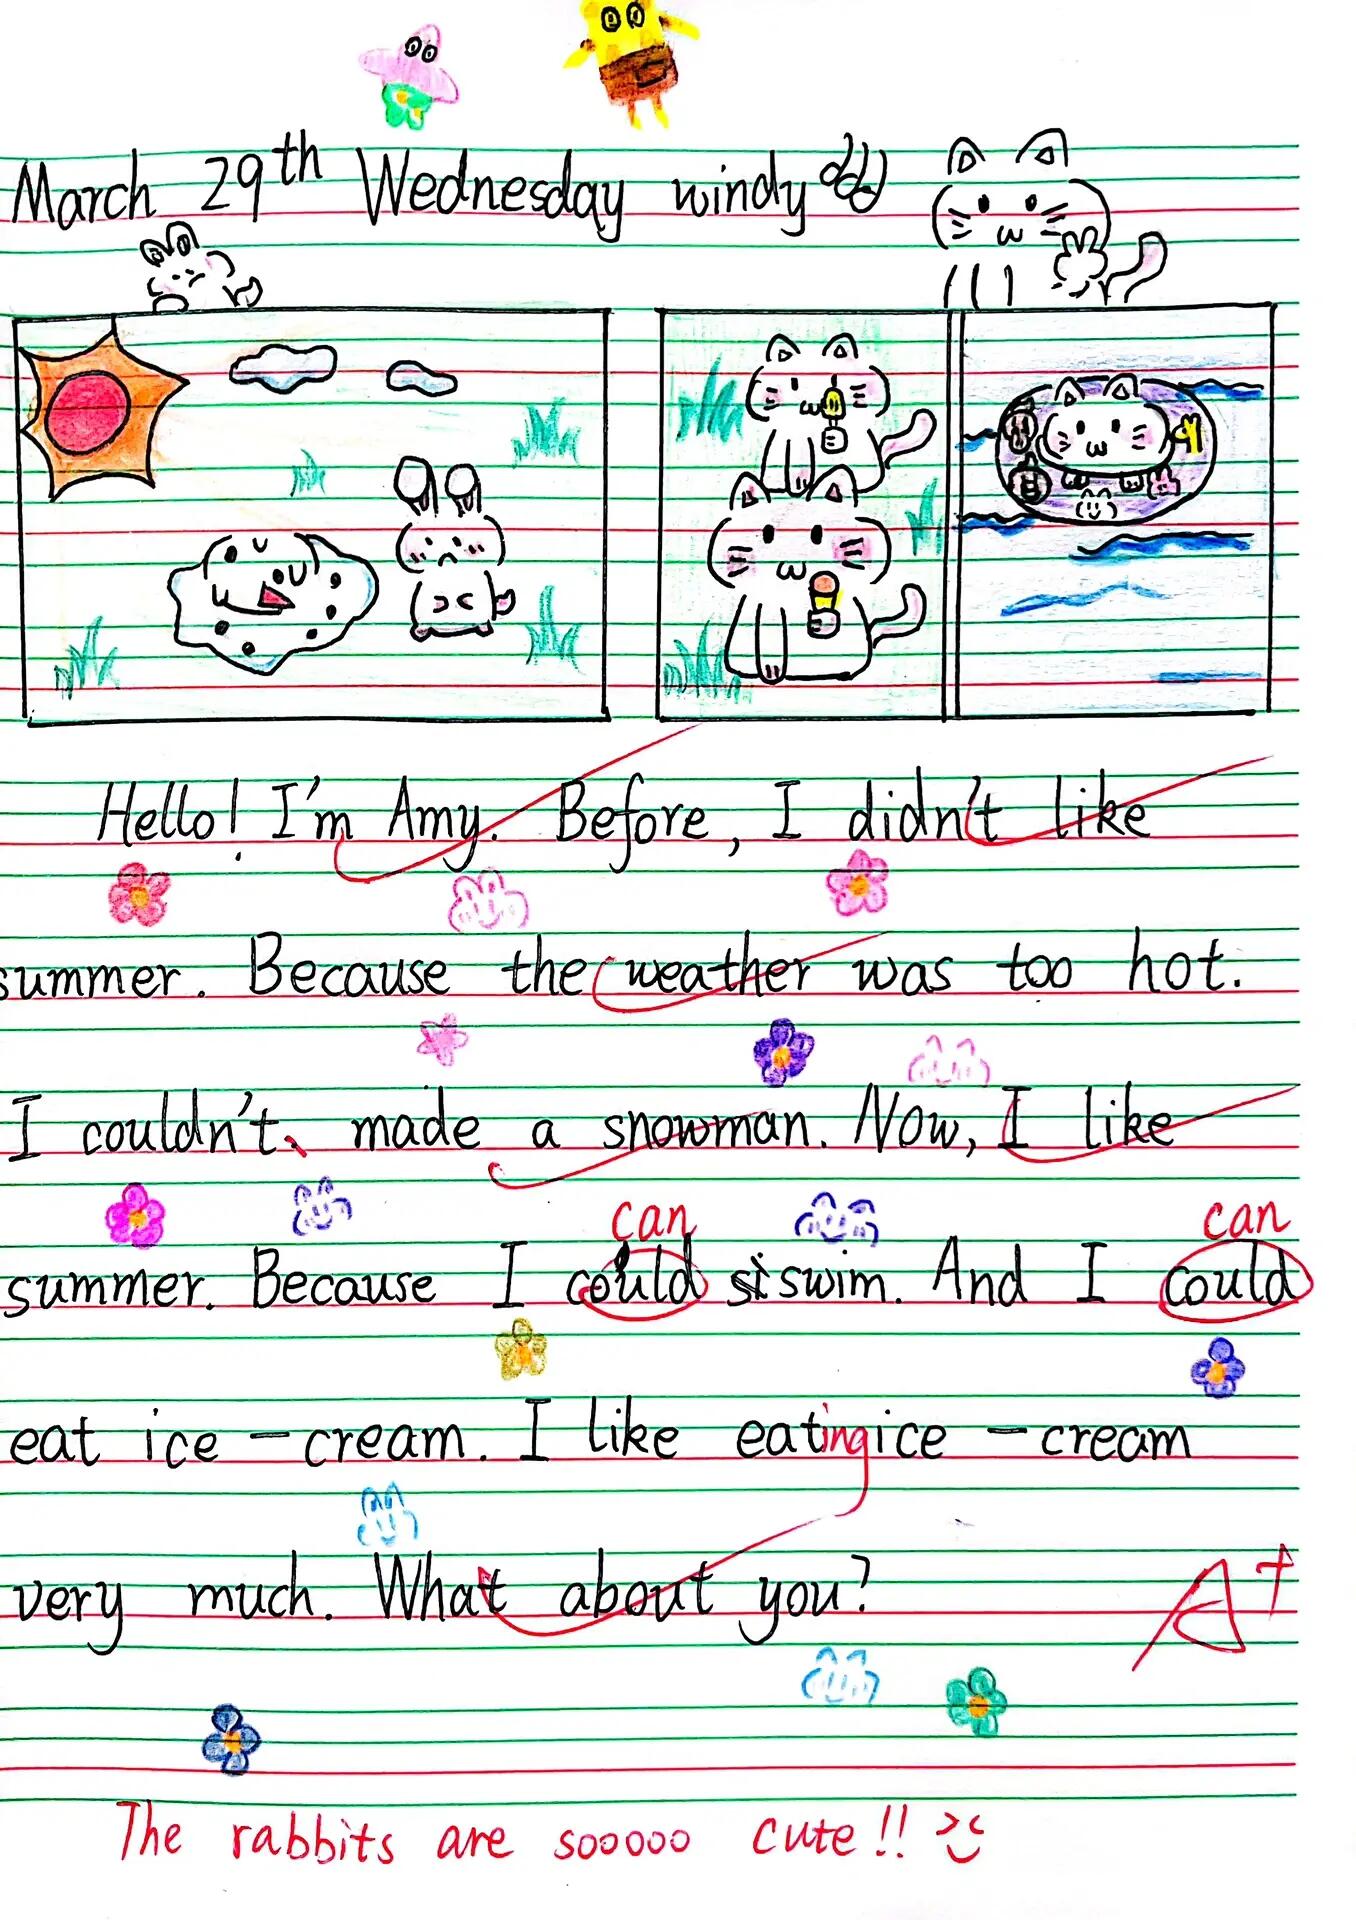 March 29th Wednesday windy
Hello! I'm Amy. Before, I didn't like
summer. Because the weather was too hot.
I couldn't made a snowman. Now, I like
can can
summer. Because I could swim. And I could
eat ice-cream. I like eating ice-cream
very much. What about you?
A+
The rabbits are sooooo cute!!